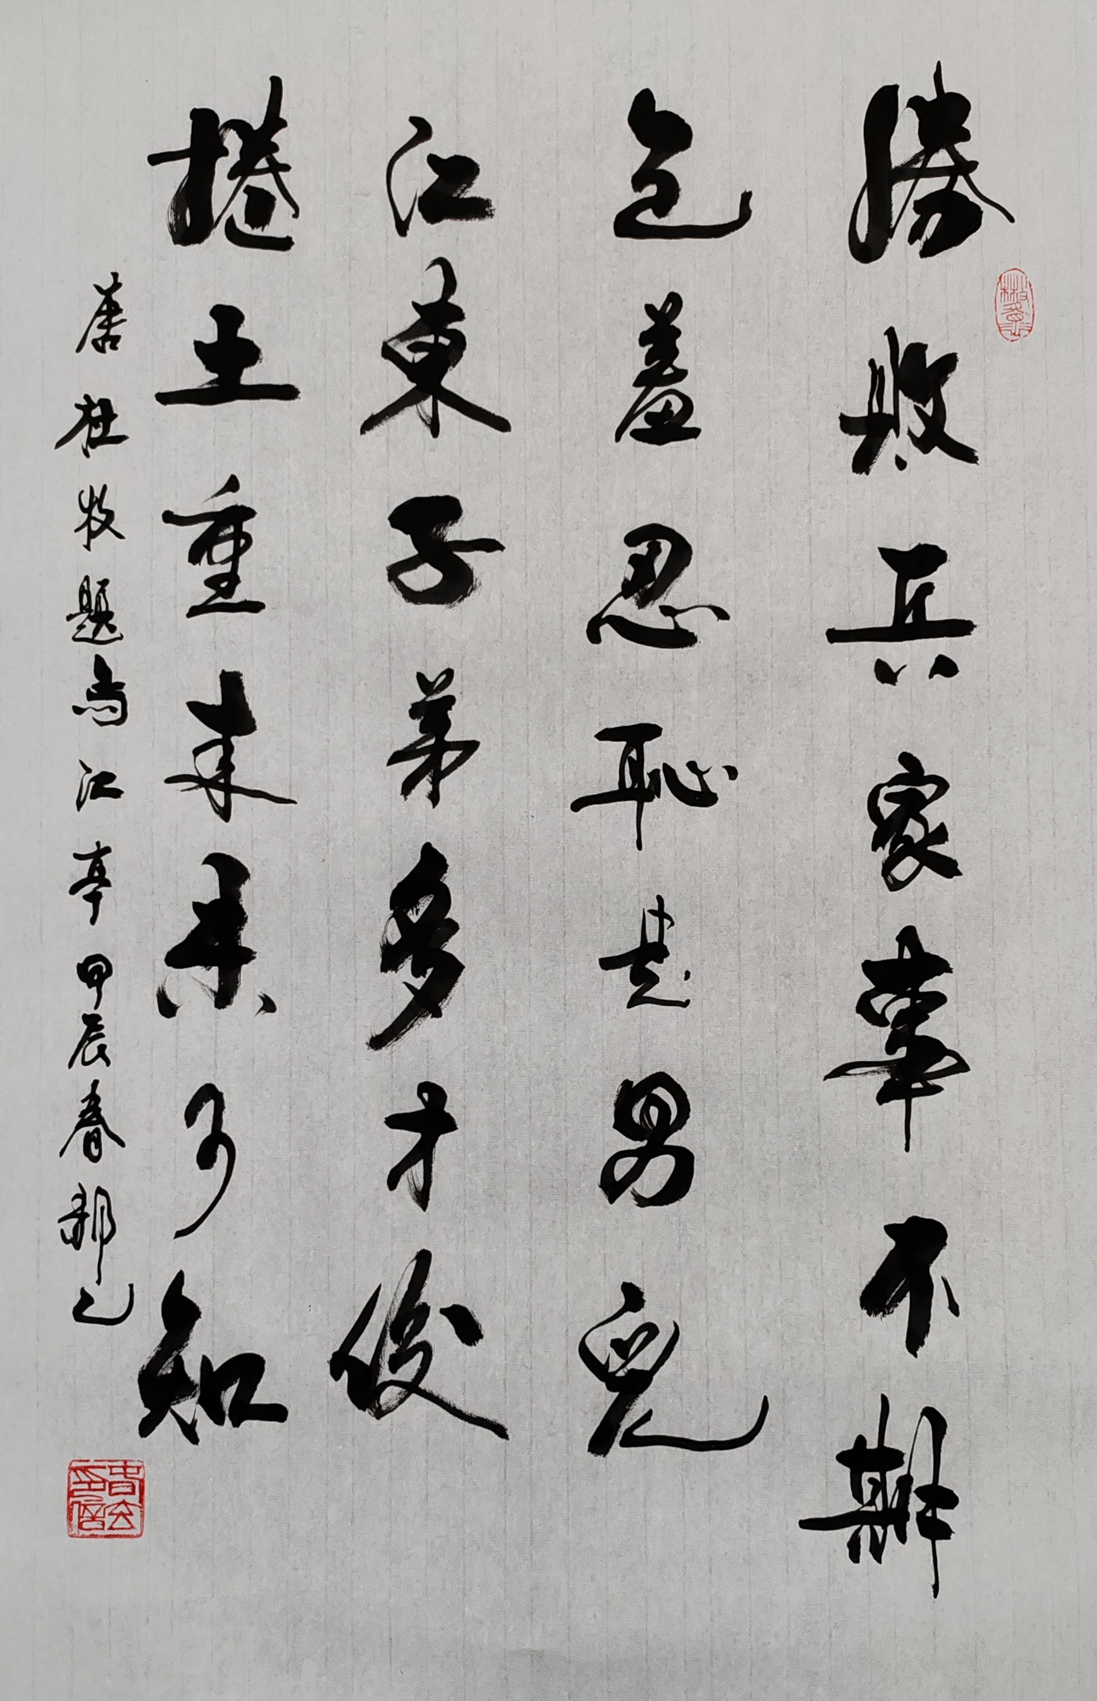 勝敗兵家事不期
包羞忍恥是男兒
江東子弟多才俊
捲土重来未可知
唐杜牧題烏江亭甲辰春